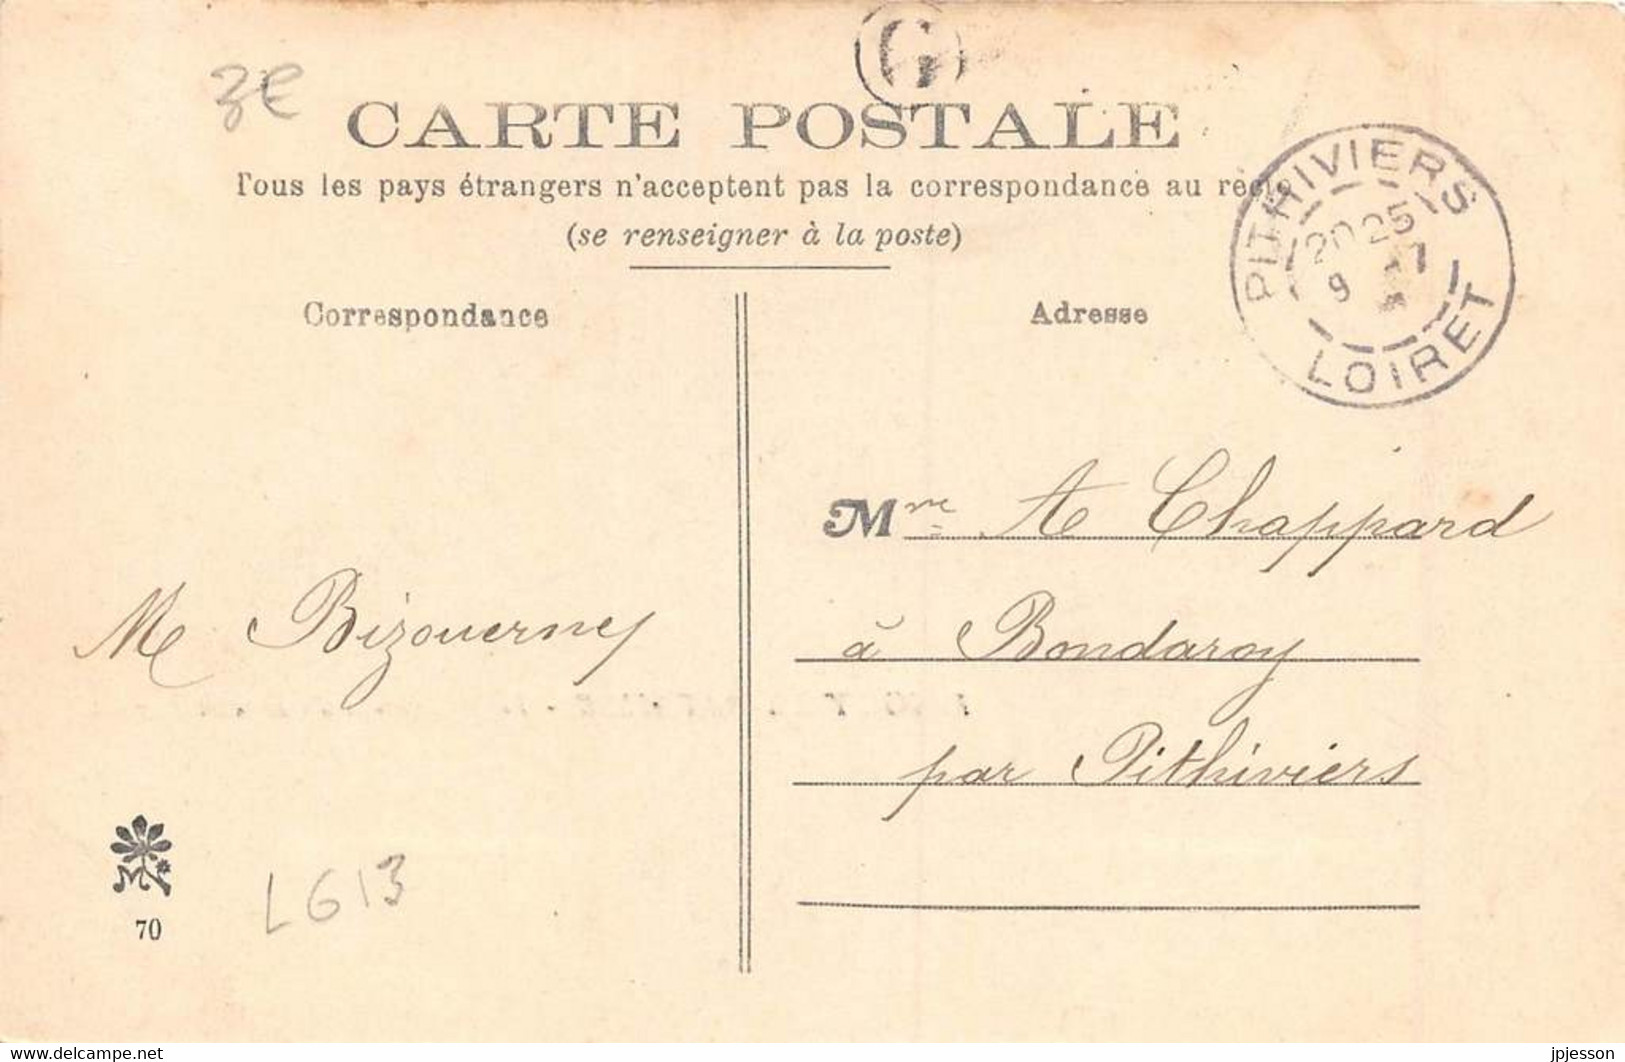 G
3€
CARTE POSTALE
Tous les pays étrangers n'acceptent pas la correspondance au recto
(se renseigner à la poste)
PITHIVIERS
20 25
9
LOIRET
Correspondance
Adresse
Mme A Chappard
à Bondaroy
par Pithiviers
M Bizouerney
M
70
LG13
www.delcampe.net
jpjesson